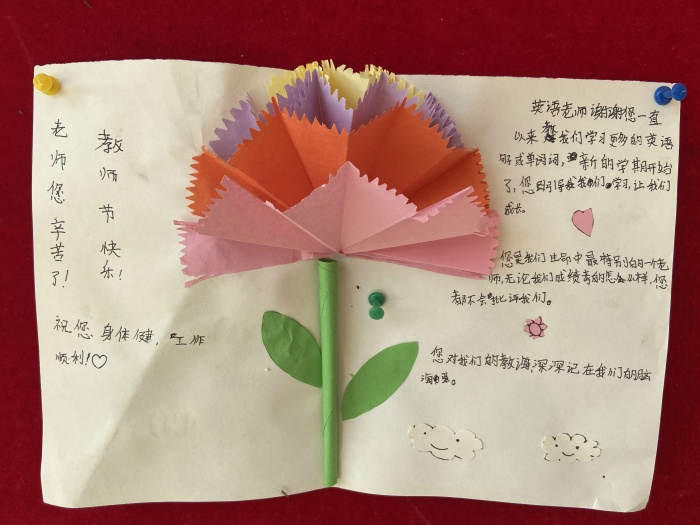 老师您辛苦了!
教师节快乐!
祝您身体健,工作
顺利!♡
英语老师谢谢您一直
以来教我们学习更多的英语
单词,新的学期开始
了,您引导我我们学习,让我们
成长。
您是我们生命中最特别的一个老
师,无论我们成绩考的怎么样,您
都不会批评我们。
您对我们的教海,深深记在我们的脑
海